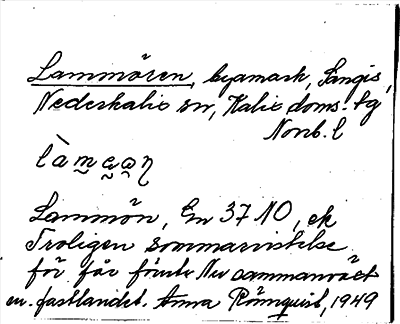 Lammören, byamark, Sangis,
Nederkalix sn, Kalix doms. tg
Norrb. l
làmǝǝn
Lammön, En 37 NO, ek
Troligen sommarvistelse
för får förute Nu sammanväxt
m. fastlandet. Anna Rönnquist, 1949